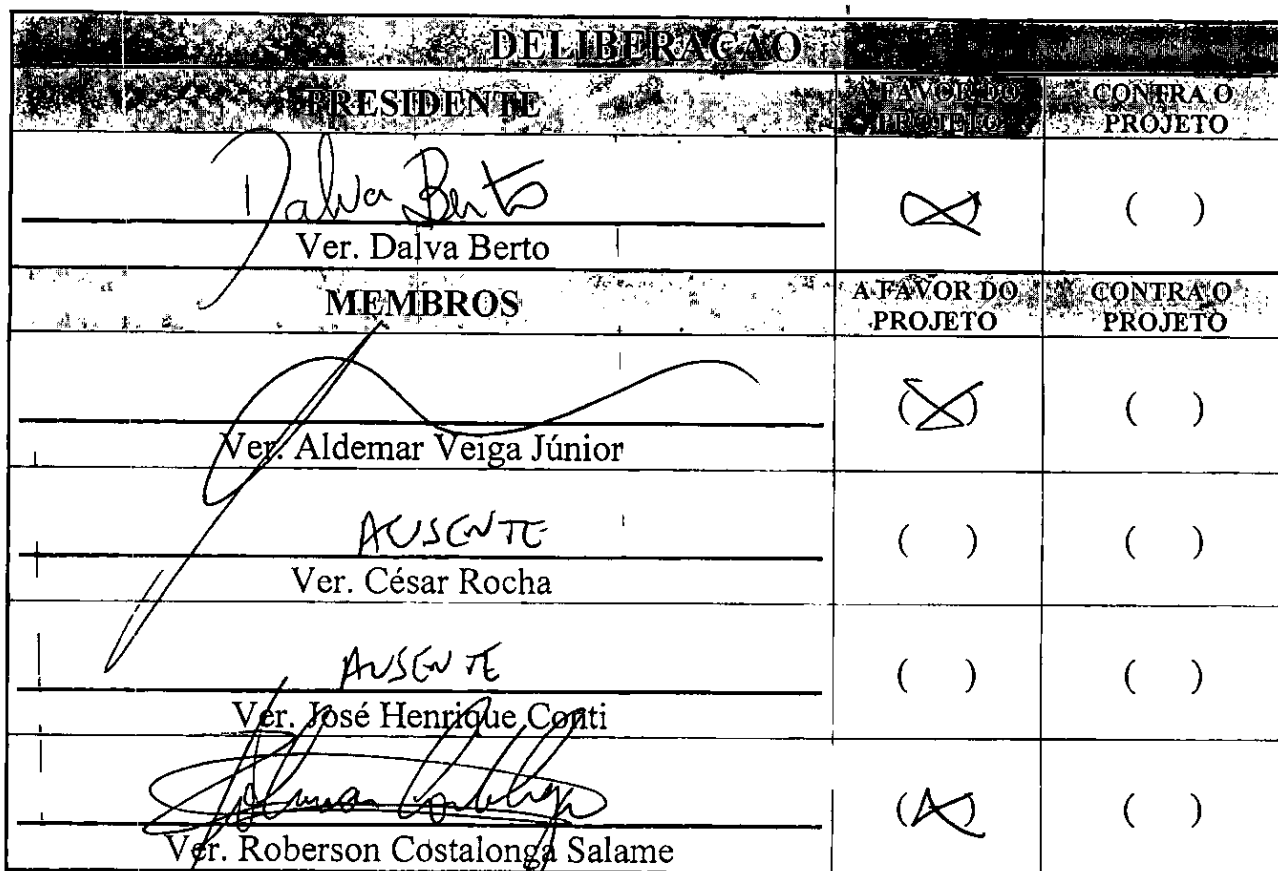 DELIBERAÇÃO
PRESIDENTE A FAVOR DO PROJETO CONTRA O PROJETO
Dalva Berto
Ver. Dalva Berto (X) ( )
MEMBROS A FAVOR DO PROJETO CONTRA O PROJETO
Ver. Aldemar Veiga Júnior (X) ( )
AUSENTE
Ver. César Rocha ( ) ( )
AUSENTE
Ver. José Henrique Conti ( ) ( )
Ver. Roberson Costalonga Salame (X) ( )